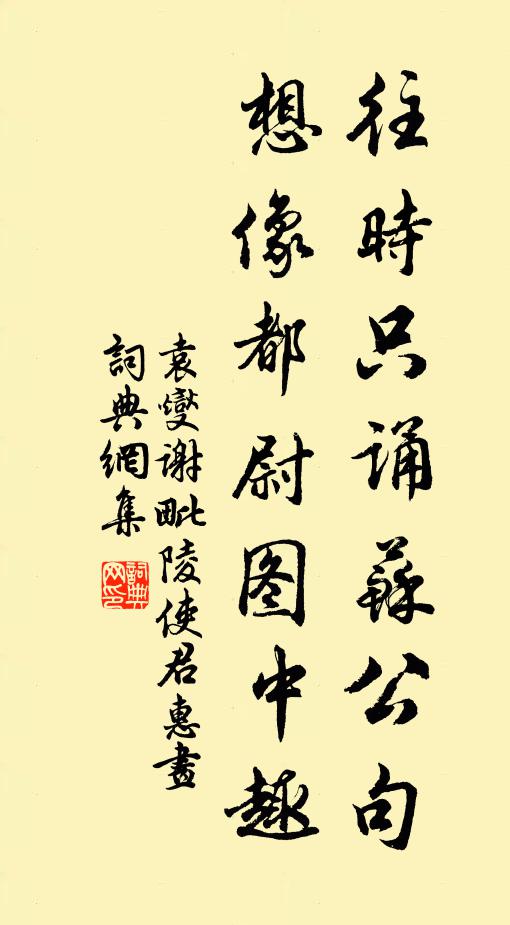 往時只誦蘇公句
想像都尉图中趣
袁燮谢毗陵使君惠畫
詞典網集
詞典
网印